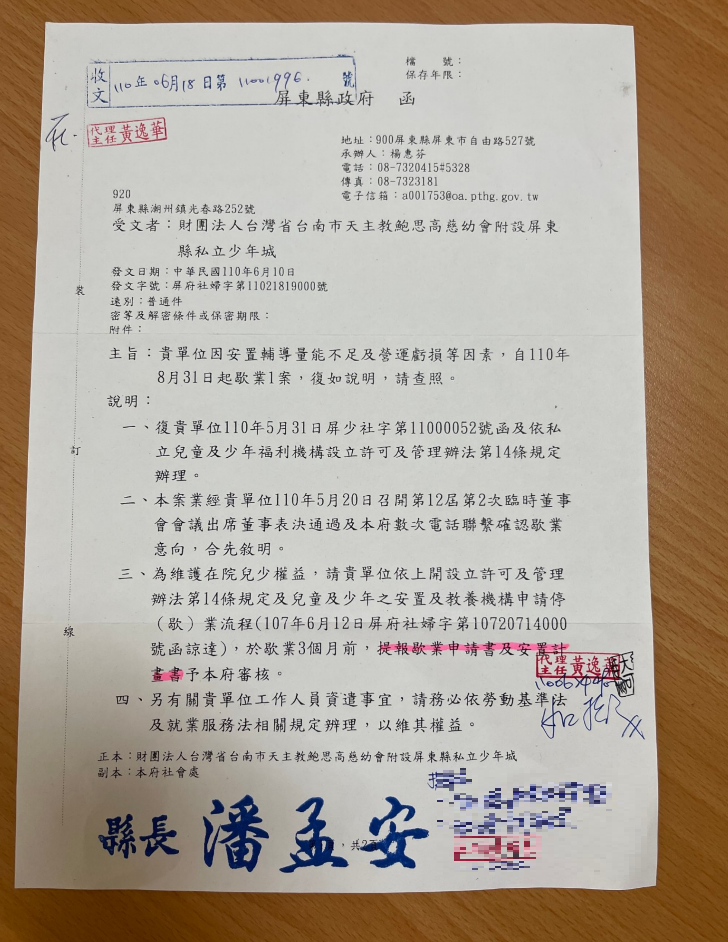 檔　　號：
保存年限：
收文 110年06月18日第11001996.號
屏東縣政府　函
代理主任 黃逸華
地址：900屏東縣屏東市自由路527號
承辦人：楊惠芬
電話：08-7320415#5328
傳真：08-7323181
電子信箱：a001753@oa.pthg.gov.tw
920
屏東縣潮州鎮光春路252號
受文者：財團法人台灣省台南市天主教鮑思高慈幼會附設屏東
縣私立少年城
發文日期：中華民國110年6月10日
發文字號：屏府社婦字第11021819000號
速別：普通件
密等及解密條件或保密期限：
附件：
裝
主旨：貴單位因安置輔導量能不足及營運虧損等因素，自110年
8月31日起歇業1案，復如說明，請查照。
說明：
一、復貴單位110年5月31日屏少社字第11000052號函及依私
立兒童及少年福利機構設立許可及管理辦法第14條規定
辦理。
訂
二、本案業經貴單位110年5月20日召開第12屆第2次臨時董事
會會議出席董事表決通過及本府數次電話聯繫確認歇業
意向，合先敘明。
三、為維護在院兒少權益，請貴單位依上開設立許可及管理
辦法第14條規定及兒童及少年之安置及教養機構申請停
（歇）業流程(107年6月12日屏府社婦字第10720714000
號函諒達)，於歇業3個月前，提報歇業申請書及安置計
畫書予本府審核。
線
代理主任 黃逸華
四、另有關貴單位工作人員資遣事宜，請務必依勞動基準法
及就業服務法相關規定辦理，以維其權益。
正本：財團法人台灣省台南市天主教鮑思高慈幼會附設屏東縣私立少年城
副本：本府社會處
縣長 潘孟安